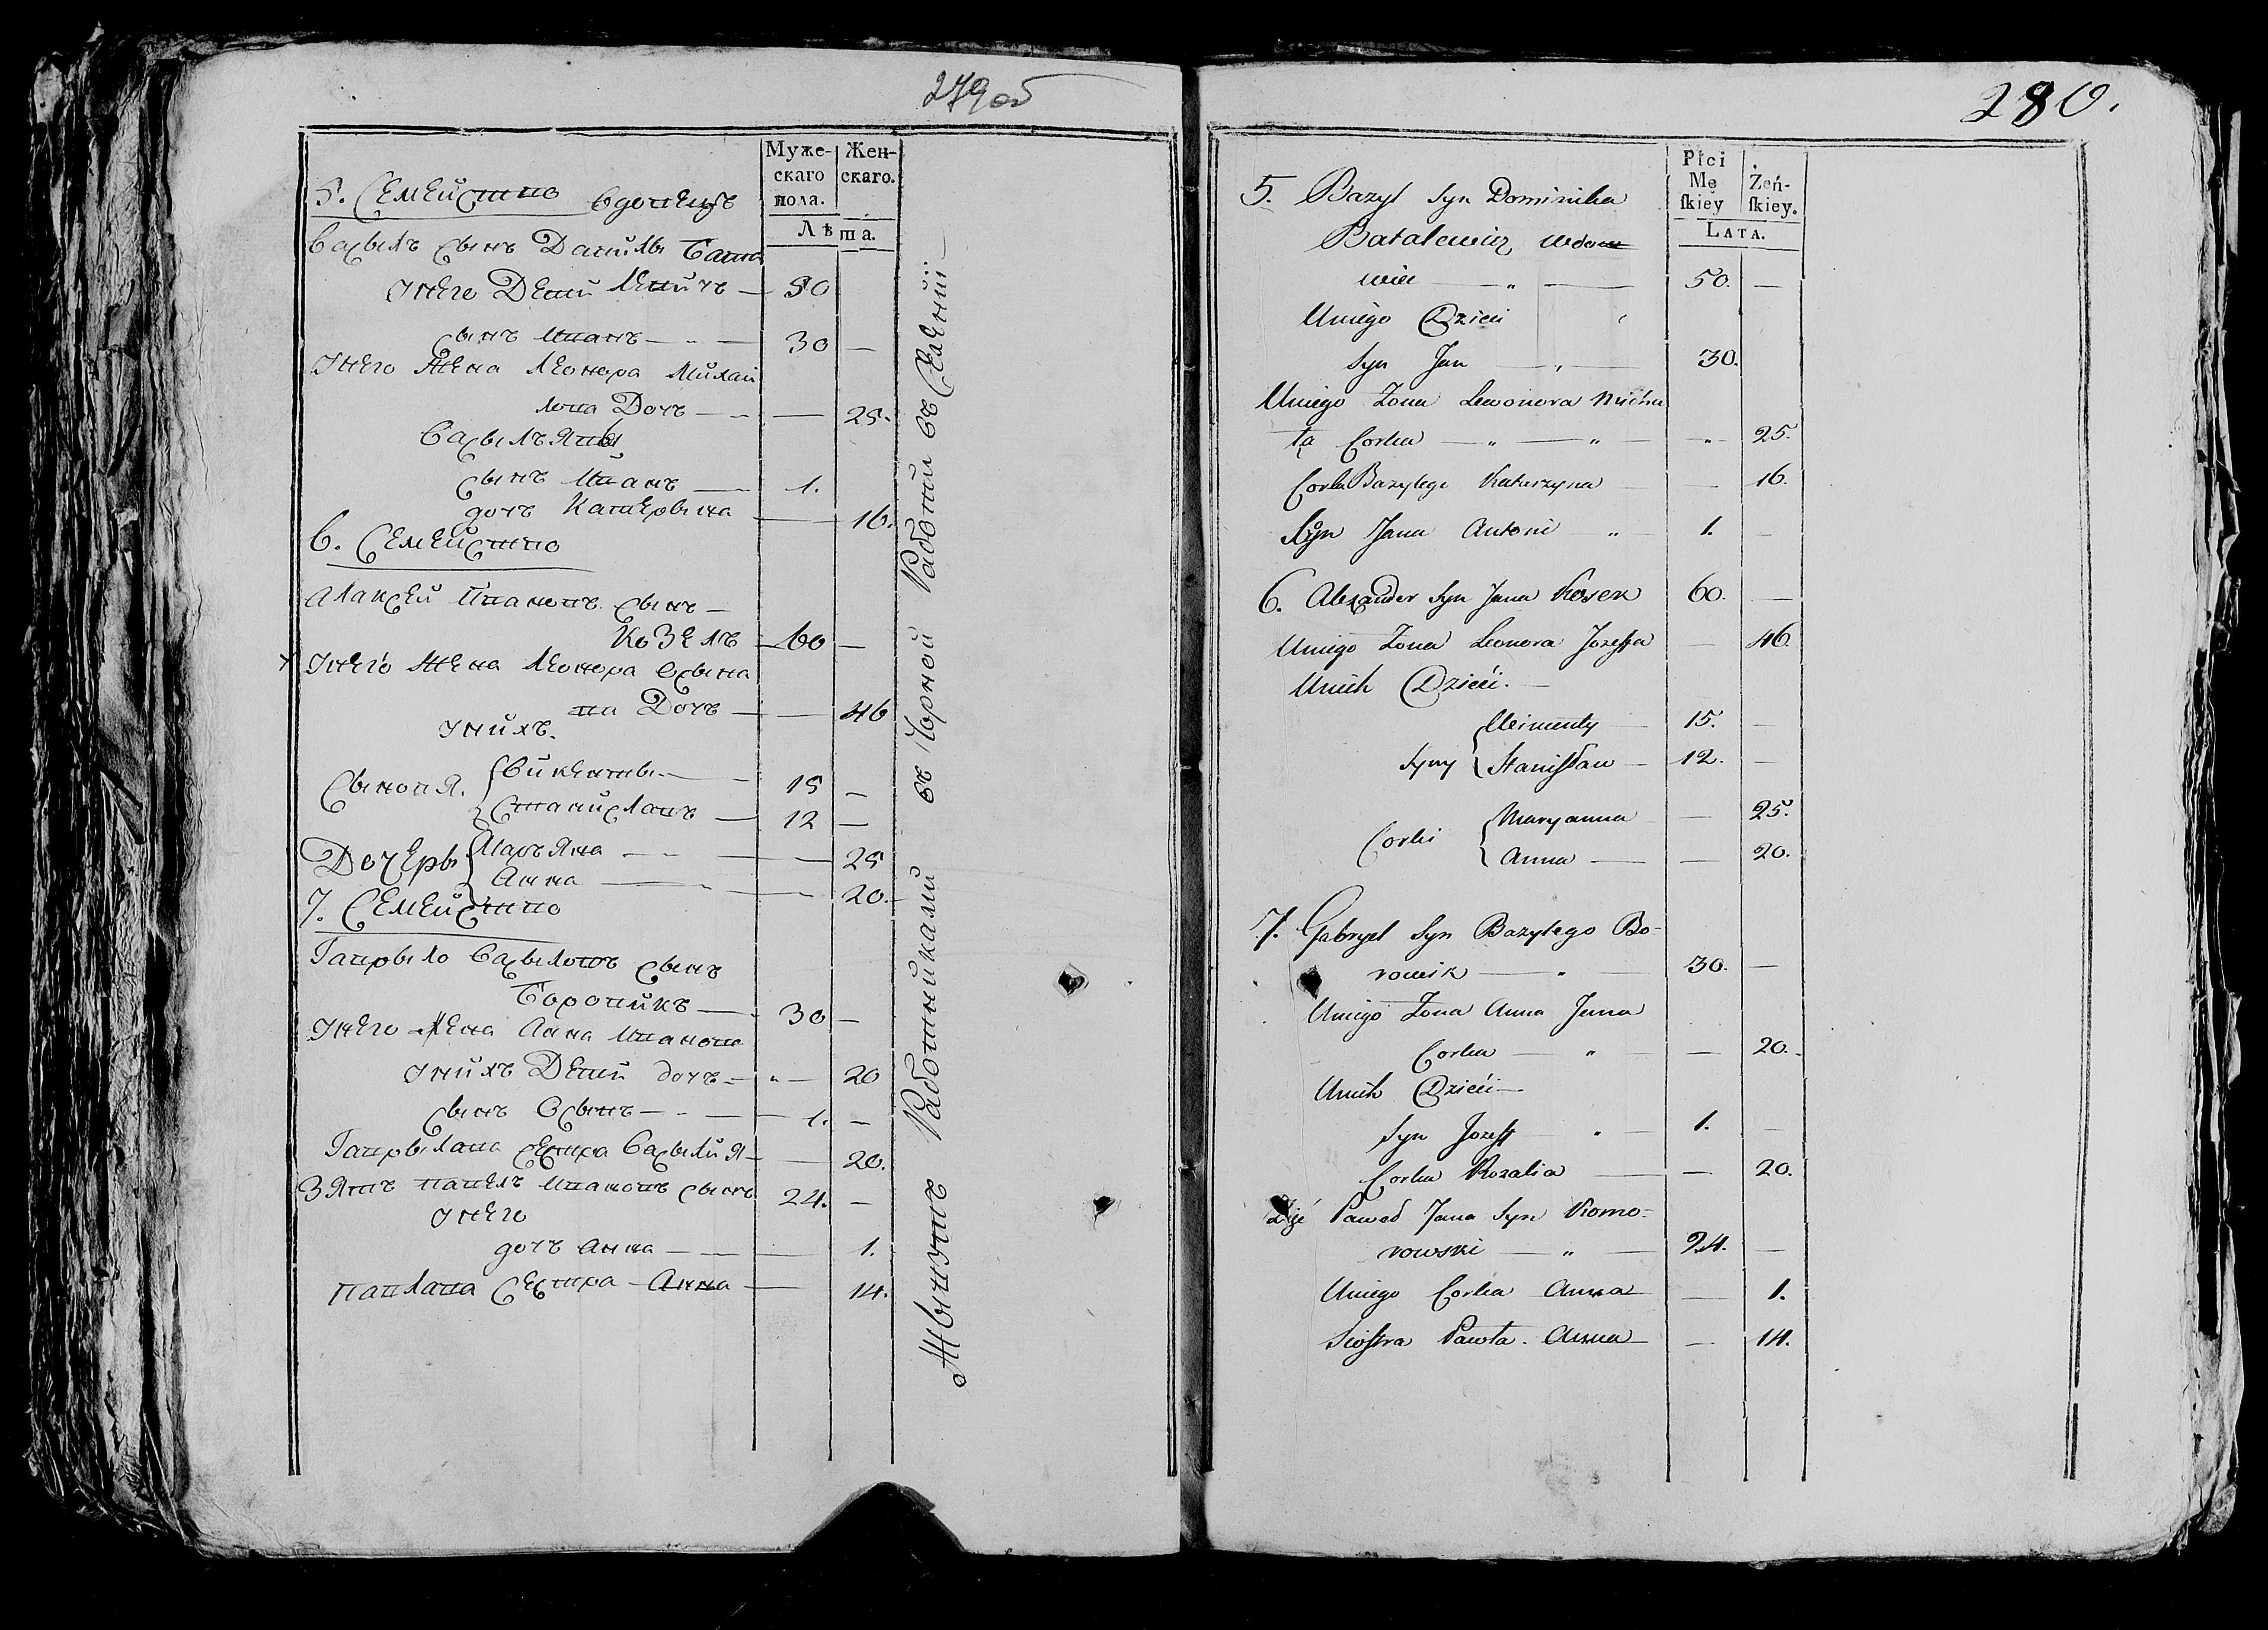 279 об
Муже-
скаго
пола.
Жен-
скаго.
Лѣта.
5. Семейство вдовецъ
Васыль сынъ Данилы Бата
левичъ — 50
У него Дети
сынъ Иванъ — 30 —
У него Жена Леонора Михай
лова Дочь — — 25.
Васыльявы
сынъ Иванъ — 1.
дочь Катерына — 16.
6. Семейство
Алаксей Ивановъ сынъ —
Козелъ — 60 —
У него Жена Леонора Осыпа
ва Дочь — — 46
У нихъ.
Сыновя. Викенты — 15 —
Станиславъ — 12 —
Дочеры Марьяна — — 25
Анна — — 20.
7. Семейство
Гаврыло Васылювъ сынъ
Боровикъ — 30 —
У него Жена Анна Иванова
дочь — „ — 20
У нихъ Дети
сынъ Осыпъ — — 1. —
Гаврылава сестра Васылия — — 20.
Зять Павелъ Ивановъ сынъ 24. —
У него
дочь Анна — — 1.
Павлава Сестра Анна — 14.
Жывуть Работниками въ Чорной Работи въ Селении —
280.
Płci
Mę
ſkiey
Żeń-
ſkiey.
Lata.
5. Bazyl Syn Dominika
Batalewicz wdow
wiec — „ — 50. —
U niego Dzieci
Syn Jan — „ — 30.
U niego Zona Lewonora Micha
ła Corka — „ — „ — „ 25.
Corka Bazylego Katarzyna — — 16.
Syn Jana Antoni „ — 1. —
6. Alexander Syn Jana Kosek 60. —
U niego Zona Leonora Jozeffa — 46.
U nich Dzieći. —
Syny Klimenty — 15. —
Staniſław — 12. —
Corki Maryanna — — 25.
Anna — — 20.
7. Gabryel Syn Bazylego Bo-
rowik — „ — 30. —
U niego Zona Anna Jana
Corka — „ — — 20.
U nich Dzieći —
Syn Jozeff „ — 1. —
Corka Rozalia — — 20.
Paweł Jana Syn Komo-
rowski — „ — 24. —
U niego Corka Anna — — 1.
Sioſtra Pawła. Anna — — 14.